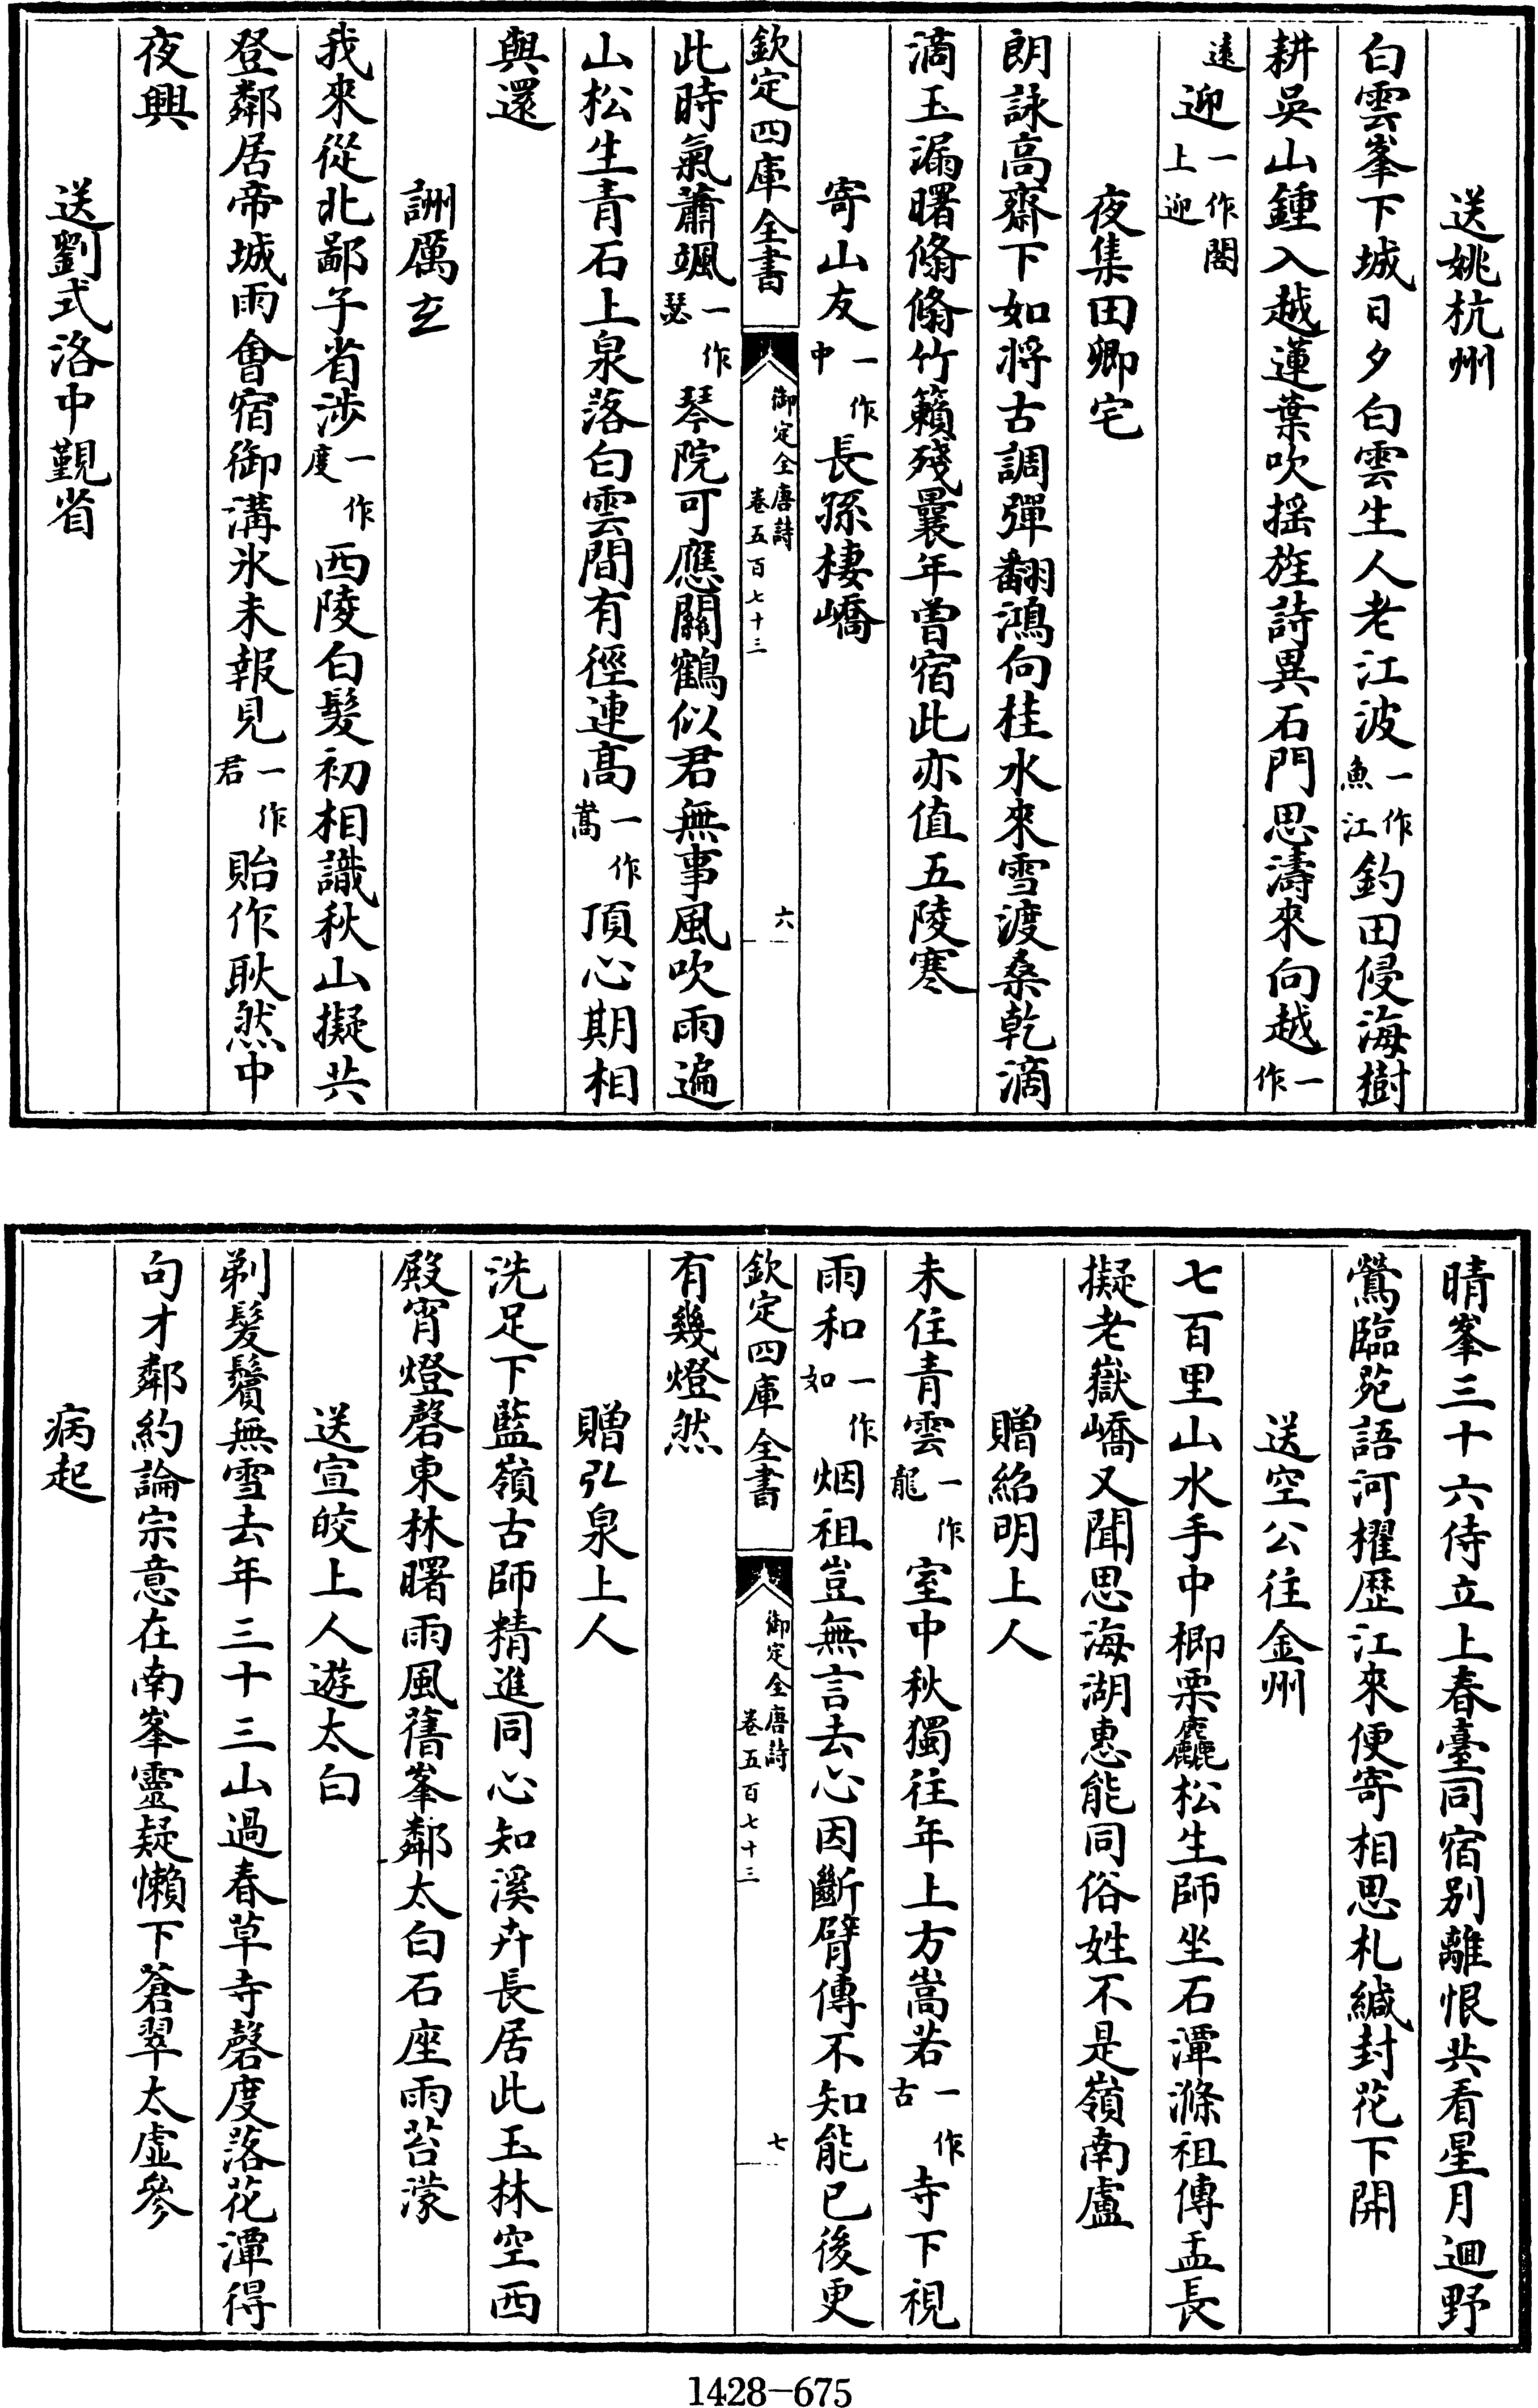 送姚杭州
白雲峯下城日夕白雲生人老江波一作魚江釣田侵海樹
耕吳山鍾入越蓮葉吹揺旌詩異石門思濤來向越一作
遠迎一作閤上迎
夜集田卿宅
朗詠高齋下如將古調彈翻鴻向桂水來雪渡桑乾滴
滴玉漏曙翛翛竹籟殘曩年曾宿此亦值五陵寒
寄山友一作中長孫棲嶠
欽定四庫全書
御定全唐詩
卷五百七十三
六
此時氣蕭颯一作瑟琴院可應關鶴似君無事風吹雨遍
山松生青石上泉落白雲間有徑連高一作嵩頂心期相
與還
詶厲玄
我來從北鄙子省涉一作度西陵白髮初相識秋山擬共
登鄰居帝城雨會宿御溝氷未報見一作君貽作耿然中
夜興
送劉式洛中覲省
晴峯三十六侍立上春臺同宿别離恨共看星月迴野
鶯臨苑語河櫂歴江來便寄相思札緘封花下開
送空公往金州
七百里山水手中楖栗麤松生師坐石潭滌祖傳盂長
擬老嶽嶠又聞思海湖惠能同俗姓不是嶺南盧
贈紹明上人
未住青雲一作龍室中秋獨往年上方嵩若一作古寺下視
雨和一作如烟祖豈無言去心因斷臂傳不知能已後更
欽定四庫全書
御定全唐詩
卷五百七十三
七
有幾燈然
贈弘泉上人
洗足下藍嶺古師精進同心知溪卉長居此玉林空西
殿宵燈磬東林曙雨風舊峯鄰太白石座雨苔濛
送宣皎上人遊太白
剃髮鬢無雪去年三十三山過春草寺磬度落花潭得
句才鄰約論宗意在南峯靈疑懶下蒼翠太虛參
病起
1428-675